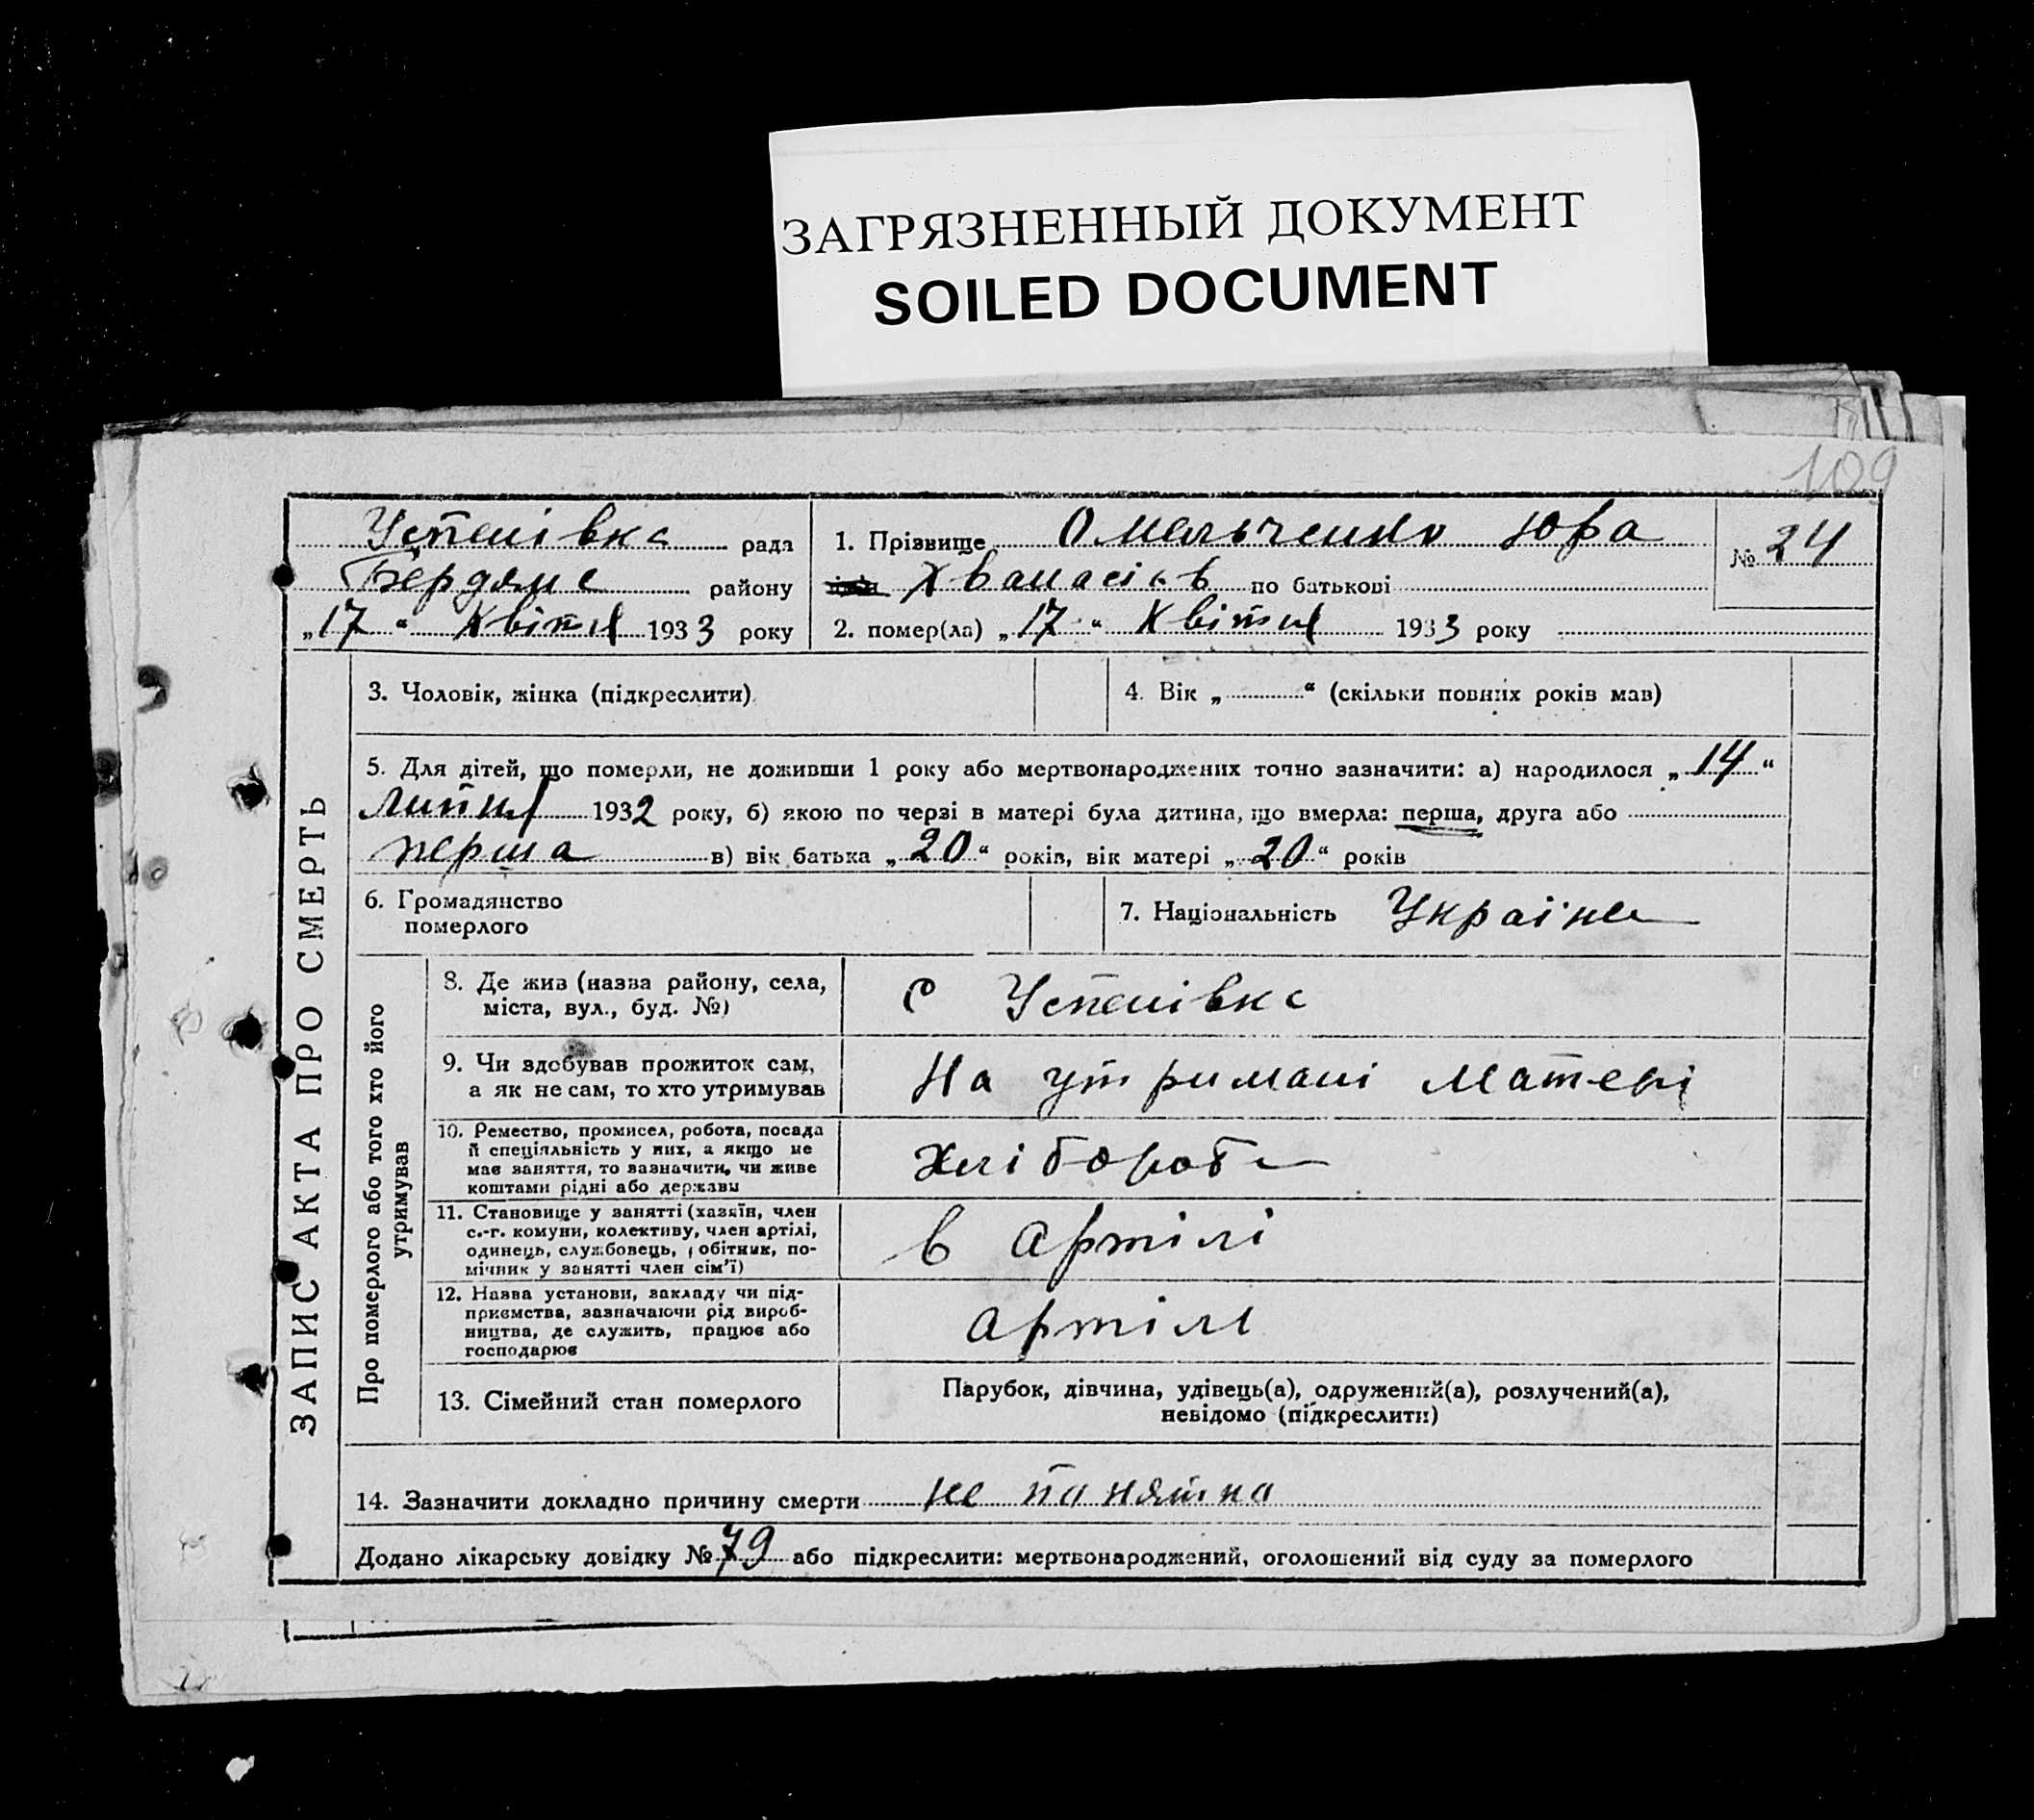 ЗАГРЯЗНЕННЫЙ ДОКУМЕНТ
SOILED DOCUMENT
109
Успенівка рада
Бердянс району
„17“ Квітня 1933 року
1. Прізвище Омельченко Юра
імя Хванасієв по батькові
2. помер(ла) „17“ Квітня 1933 року
№ 24
ЗАПИС АКТА ПРО СМЕРТЬ
3. Чоловік, жінка (підкреслити)
4. Вік „ “ (скільки повних років мав)
5. Для дітей, що померли, не доживши 1 року або мертвонароджених точно зазначити: а) народилося „14“
Липня 1932 року, б) якою по черзі в матері була дитина, що вмерла: перша, друга або
перша в) вік батька „20“ років, вік матері „20“ років
6. Громадянство
померлого
7. Національність Україне
Про померлого або того хто його
утримував
8. Де жив (назва району, села,
міста, вул., буд. №)
с Успенівка
9. Чи здобував прожиток сам,
а як не сам, то хто утримував
На утримані Матері
10. Ремество, промисел, робота, посада
й спеціяльність у них, а якщо не
має заняття, то зазначити, чи живе
коштами рідні або держави
Хлібороб
11. Становище у занятті (хазяїн, член
с.-г. комуни, колективу, член артілі,
одинець, службовець, робітник, по-
мічник у занятті член сім'ї)
в Артілі
12. Назва установи, закладу чи під-
приємства, зазначаючи рід вироб-
ництва, де служить, працює або
господарює
Артілі
13. Сімейний стан померлого
Парубок, дівчина, удівець(а), одружений(а), розлучений(а),
невідомо (підкреслити)
14. Зазначити докладно причину смерти не понятно
Додано лікарську довідку № 79 або підкреслити: мертвонароджений, оголошений від суду за померлого